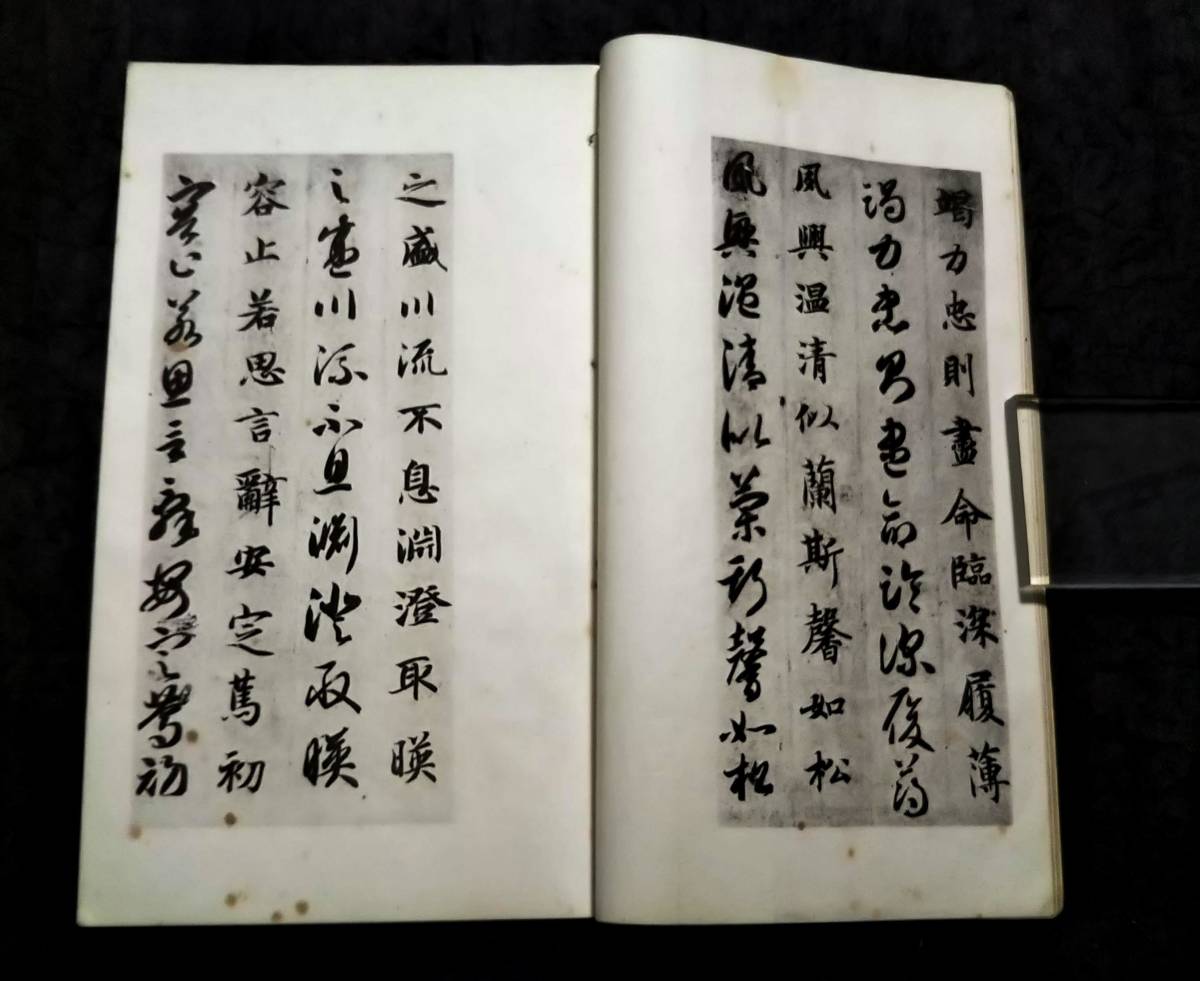 竭力忠則盡命臨深履薄
竭力忠則盡命臨深履薄
夙興温清似蘭斯馨如松
夙興温清似蘭斯馨如松
之盛川流不息淵澄取暎
之盛川流不息淵澄取暎
容止若思言辭安定篤初
容止若思言辭安定篤初